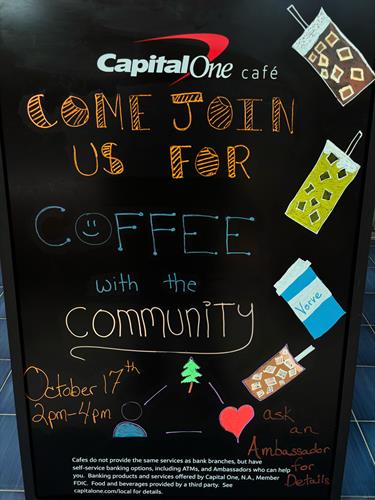 Capital One café
COME JOIN
US FOR
COFFEE
with the
COMMUNITY
October 17th
2pm-4pm
Verve
ask
an
Ambassador
for
Details
Cafes do not provide the same services as bank branches, but have
self-service banking options, including ATMs, and Ambassadors who can help
you. Banking products and services offered by Capital One, N.A., Member
FDIC. Food and beverages provided by a third party. See
capitalone.com/local for details.